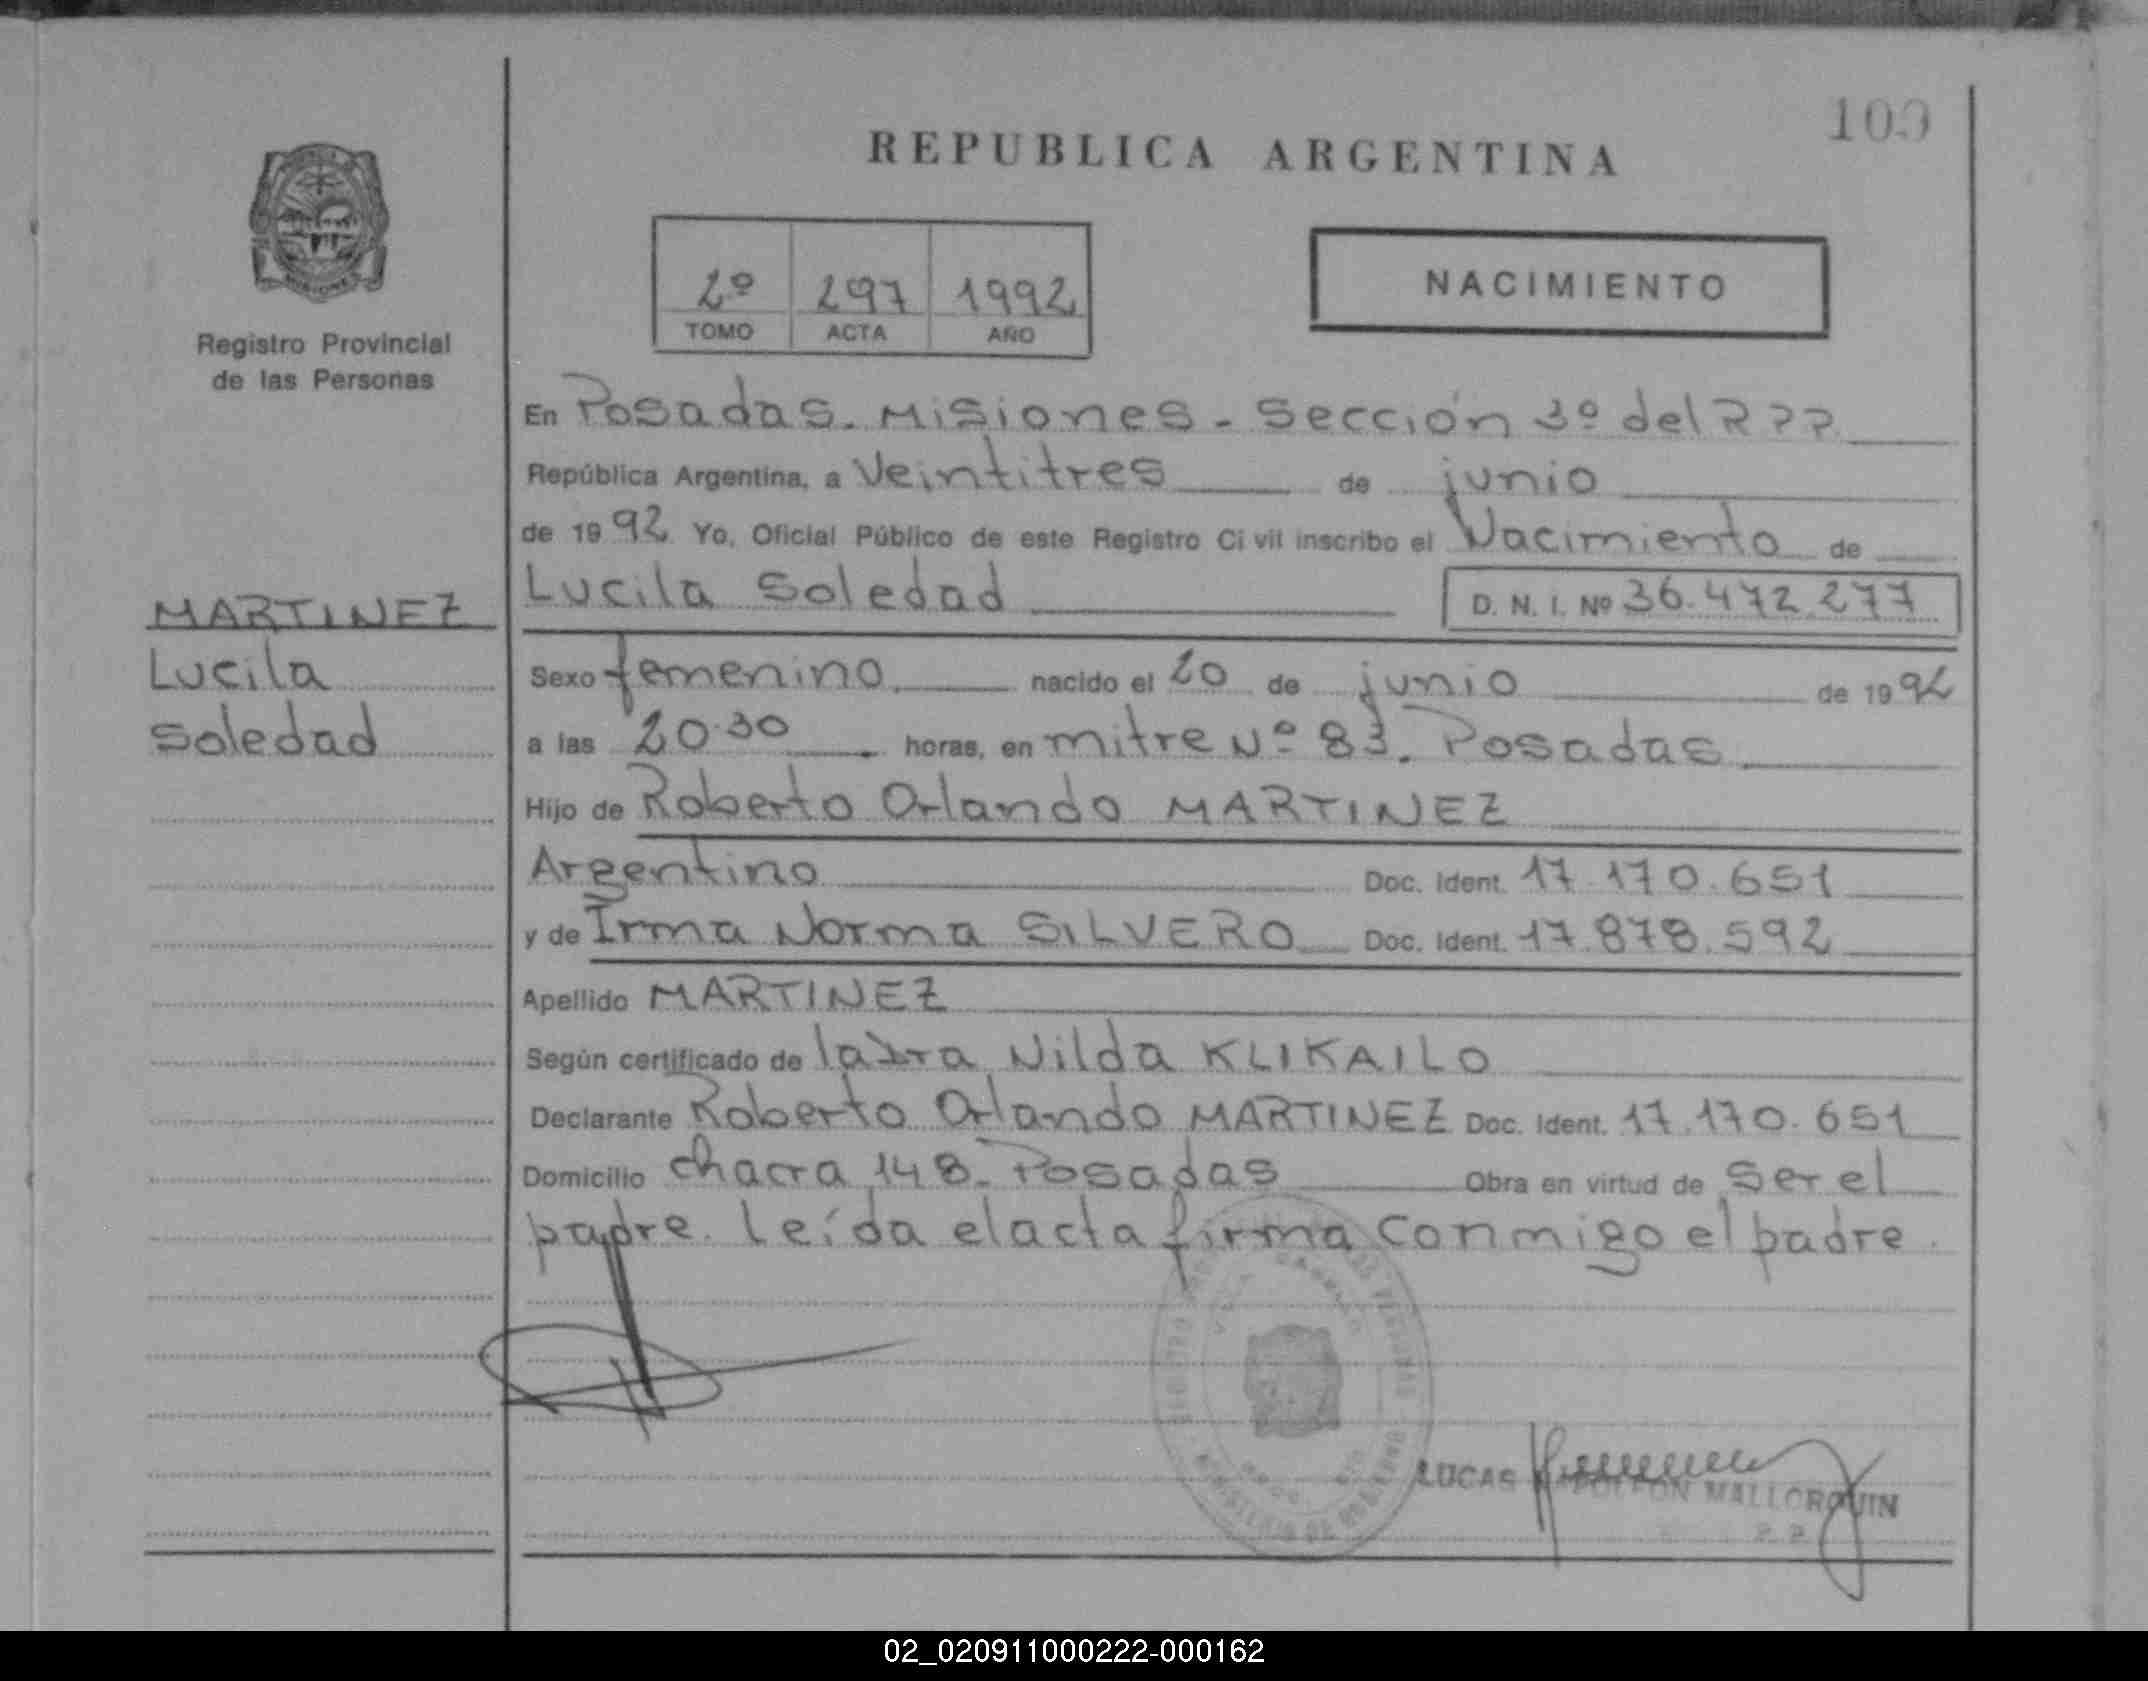 103
REPUBLICA ARGENTINA
2º 297 1992
TOMO ACTA AÑO
NACIMIENTO
Registro Provincial
de las Personas
MARTINEZ
Lucila
Soledad
En Posadas. Misiones - Sección 3º del R P P
República Argentina, a Veintitres de junio
de 1992 Yo, Oficial Público de este Registro Civil inscribo el Nacimiento de
Lucila Soledad D. N. I. Nº 36.472.277
Sexo femenino nacido el 20 de junio de 1992
a las 20.30 horas, en mitre Nº 83. Posadas
Hijo de Roberto Orlando MARTINEZ
Argentino Doc. Ident. 17.170.651
y de Irma Norma SILVERO Doc. Ident. 17.878.592
Apellido MARTINEZ
Según certificado de la Nilda KLIKAILO
Declarante Roberto Orlando MARTINEZ Doc. Ident. 17.170.651
Domicilio chacra 148. Posadas Obra en virtud de ser el
padre. leída el acta firma conmigo el padre.
LUCAS NAPOLEON MALLORQUIN
02_020911000222-000162